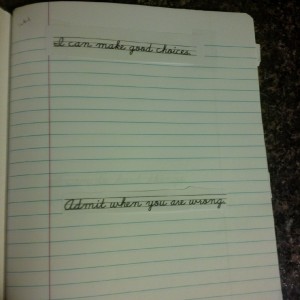 I can make good choices.
Admit when you are wrong.